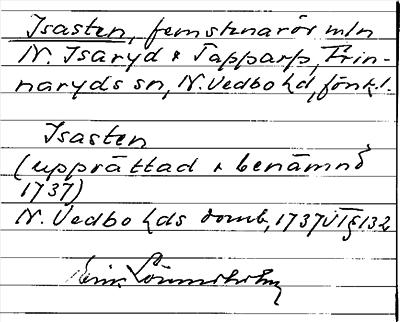 Isasten, femstenarör mln
N. Isaryd & Tapparp, Frin-
naryds sn, N. Vedbo hd, Jönk.l.
Isasten
(upprättad & benämnd
1737)
N. Vedbo hds domb, 1737 VI § 132